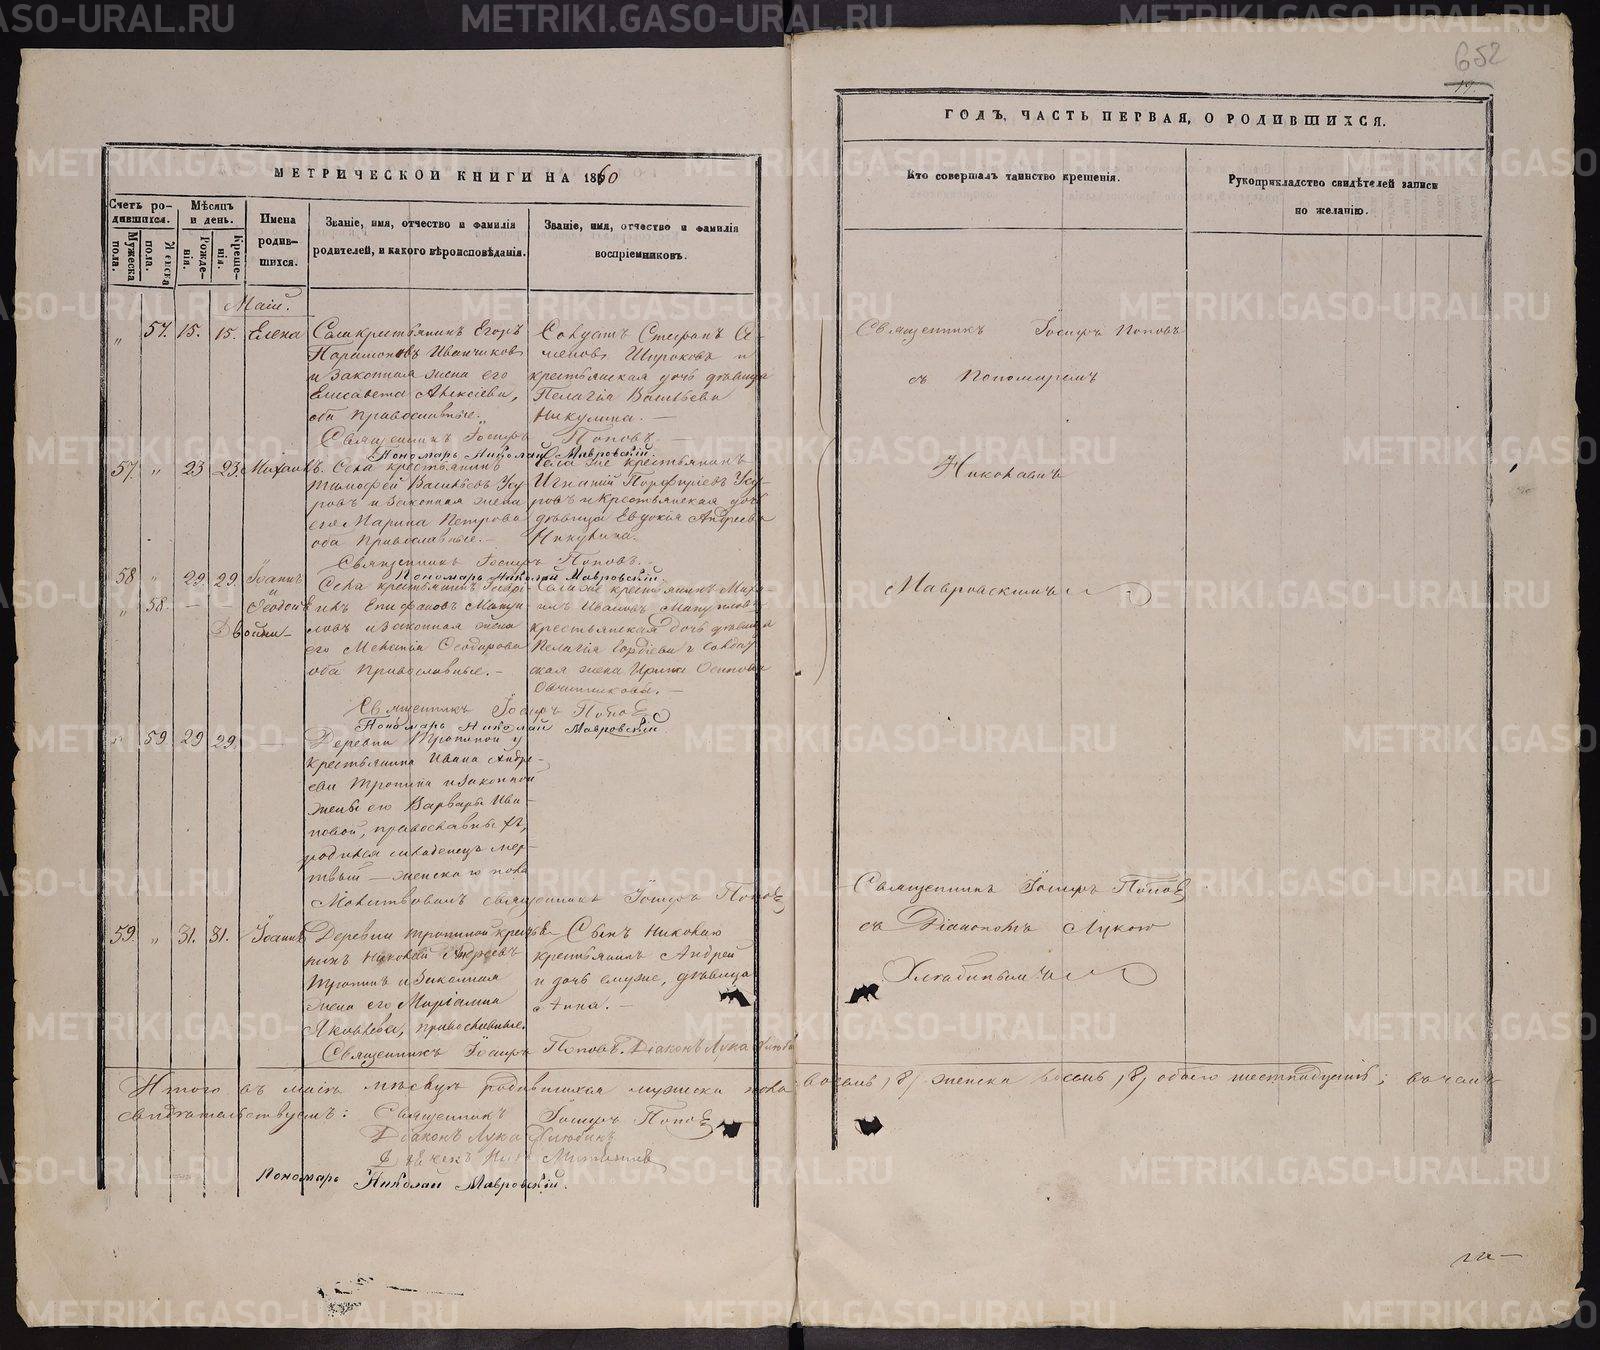 652
МЕТРИЧЕСКОЙ КНИГИ НА 1860
Счетъ родившихся.
Мужеска пола.
Женска пола.
Мѣсяцъ и день.
Рожденія.
Крещенія.
Имена родившихся.
Званіе, имя, отчество и фамилія
родителей, и какого вѣроисповѣданія.
Званіе, имя, отчество и фамилія
воспріемниковъ.
Маій.
" 57. 15. 15. Елена
Села крестьянинъ Егоръ
Парамоновъ Иванчиковъ
и законная жена его
Елисавета Алексѣева,
оба православные.
Солдатъ Стефанъ Се-
меновъ Широковъ и
крестьянская дочь дѣвица
Пелагія Васильева
Никулина. —
Священникъ Іосифъ Поповъ. —
Пономарь Николай Мавровскій.
57. " 23 23. Михаилъ.
Села крестьянинъ
Тимофей Васильевъ
и законная жена
его Марина Петрова
оба православные. —
Села же крестьянинъ
Игнатій Порфиріевъ
и крестьянская дочь
дѣвица Евдокія Андреева
Никулина.
Священникъ Іосифъ Поповъ. —
Пономарь Николай Мавровскій
58 " 29. 29. Іоаннъ
и
" 58. — — Ѳеодосія
Двойни —
Села крестьянинъ
Епифановъ
и законная жена
его Меланія Ѳеодорова
оба православные. —
Села же крестьянинъ
Ивановъ
крестьянская дочь дѣвица
Пелагія Гордіева и солдат-
ская жена Ирина Осипова
Овчинникова. —
Священникъ Іосифъ Поповъ
Пономарь Николай Мавровскій
" 59 29 29. —
Деревни Тропиной у
крестьянина Ивана Андре-
ева Тропина и законной
жены его Варвары Ива-
новой, православныхъ,
родился младенецъ мер-
твый — женскаго пола
Молитвовалъ священникъ Іосифъ Поповъ
59. " 31. 31. Іоаннъ
Деревни Тропиной кресть-
янинъ Николай Андреевъ
Тропинъ и законная
жена его Маріамна
Яковлева, православные.
Сынъ Николаю
крестьянинъ Андрей
и дочь ему же, дѣвица
Анна. —
Священникъ Іосифъ Поповъ. Діаконъ Лука
Итого въ маѣ мѣсяцѣ родившихся мужеска пола восемь /8/ женска восемь /8/ обоего шестнадцать; въ чемъ
свидѣтельствуемъ: Священникъ Іосифъ Поповъ
Діаконъ Лука Хлюбинъ
Пономарь Николай Мавровскій.
ГОДЪ, ЧАСТЬ ПЕРВАЯ, О РОДИВШИХСЯ.
Кто совершалъ таинство крещенія.
Рукоприкладство свидѣтелей записи
по желанію.
Священникъ Іосифъ Поповъ
съ Пономаремъ
Николаемъ
Мавровскимъ
Священникъ Іосифъ Поповъ
съ Діакономъ Лукою